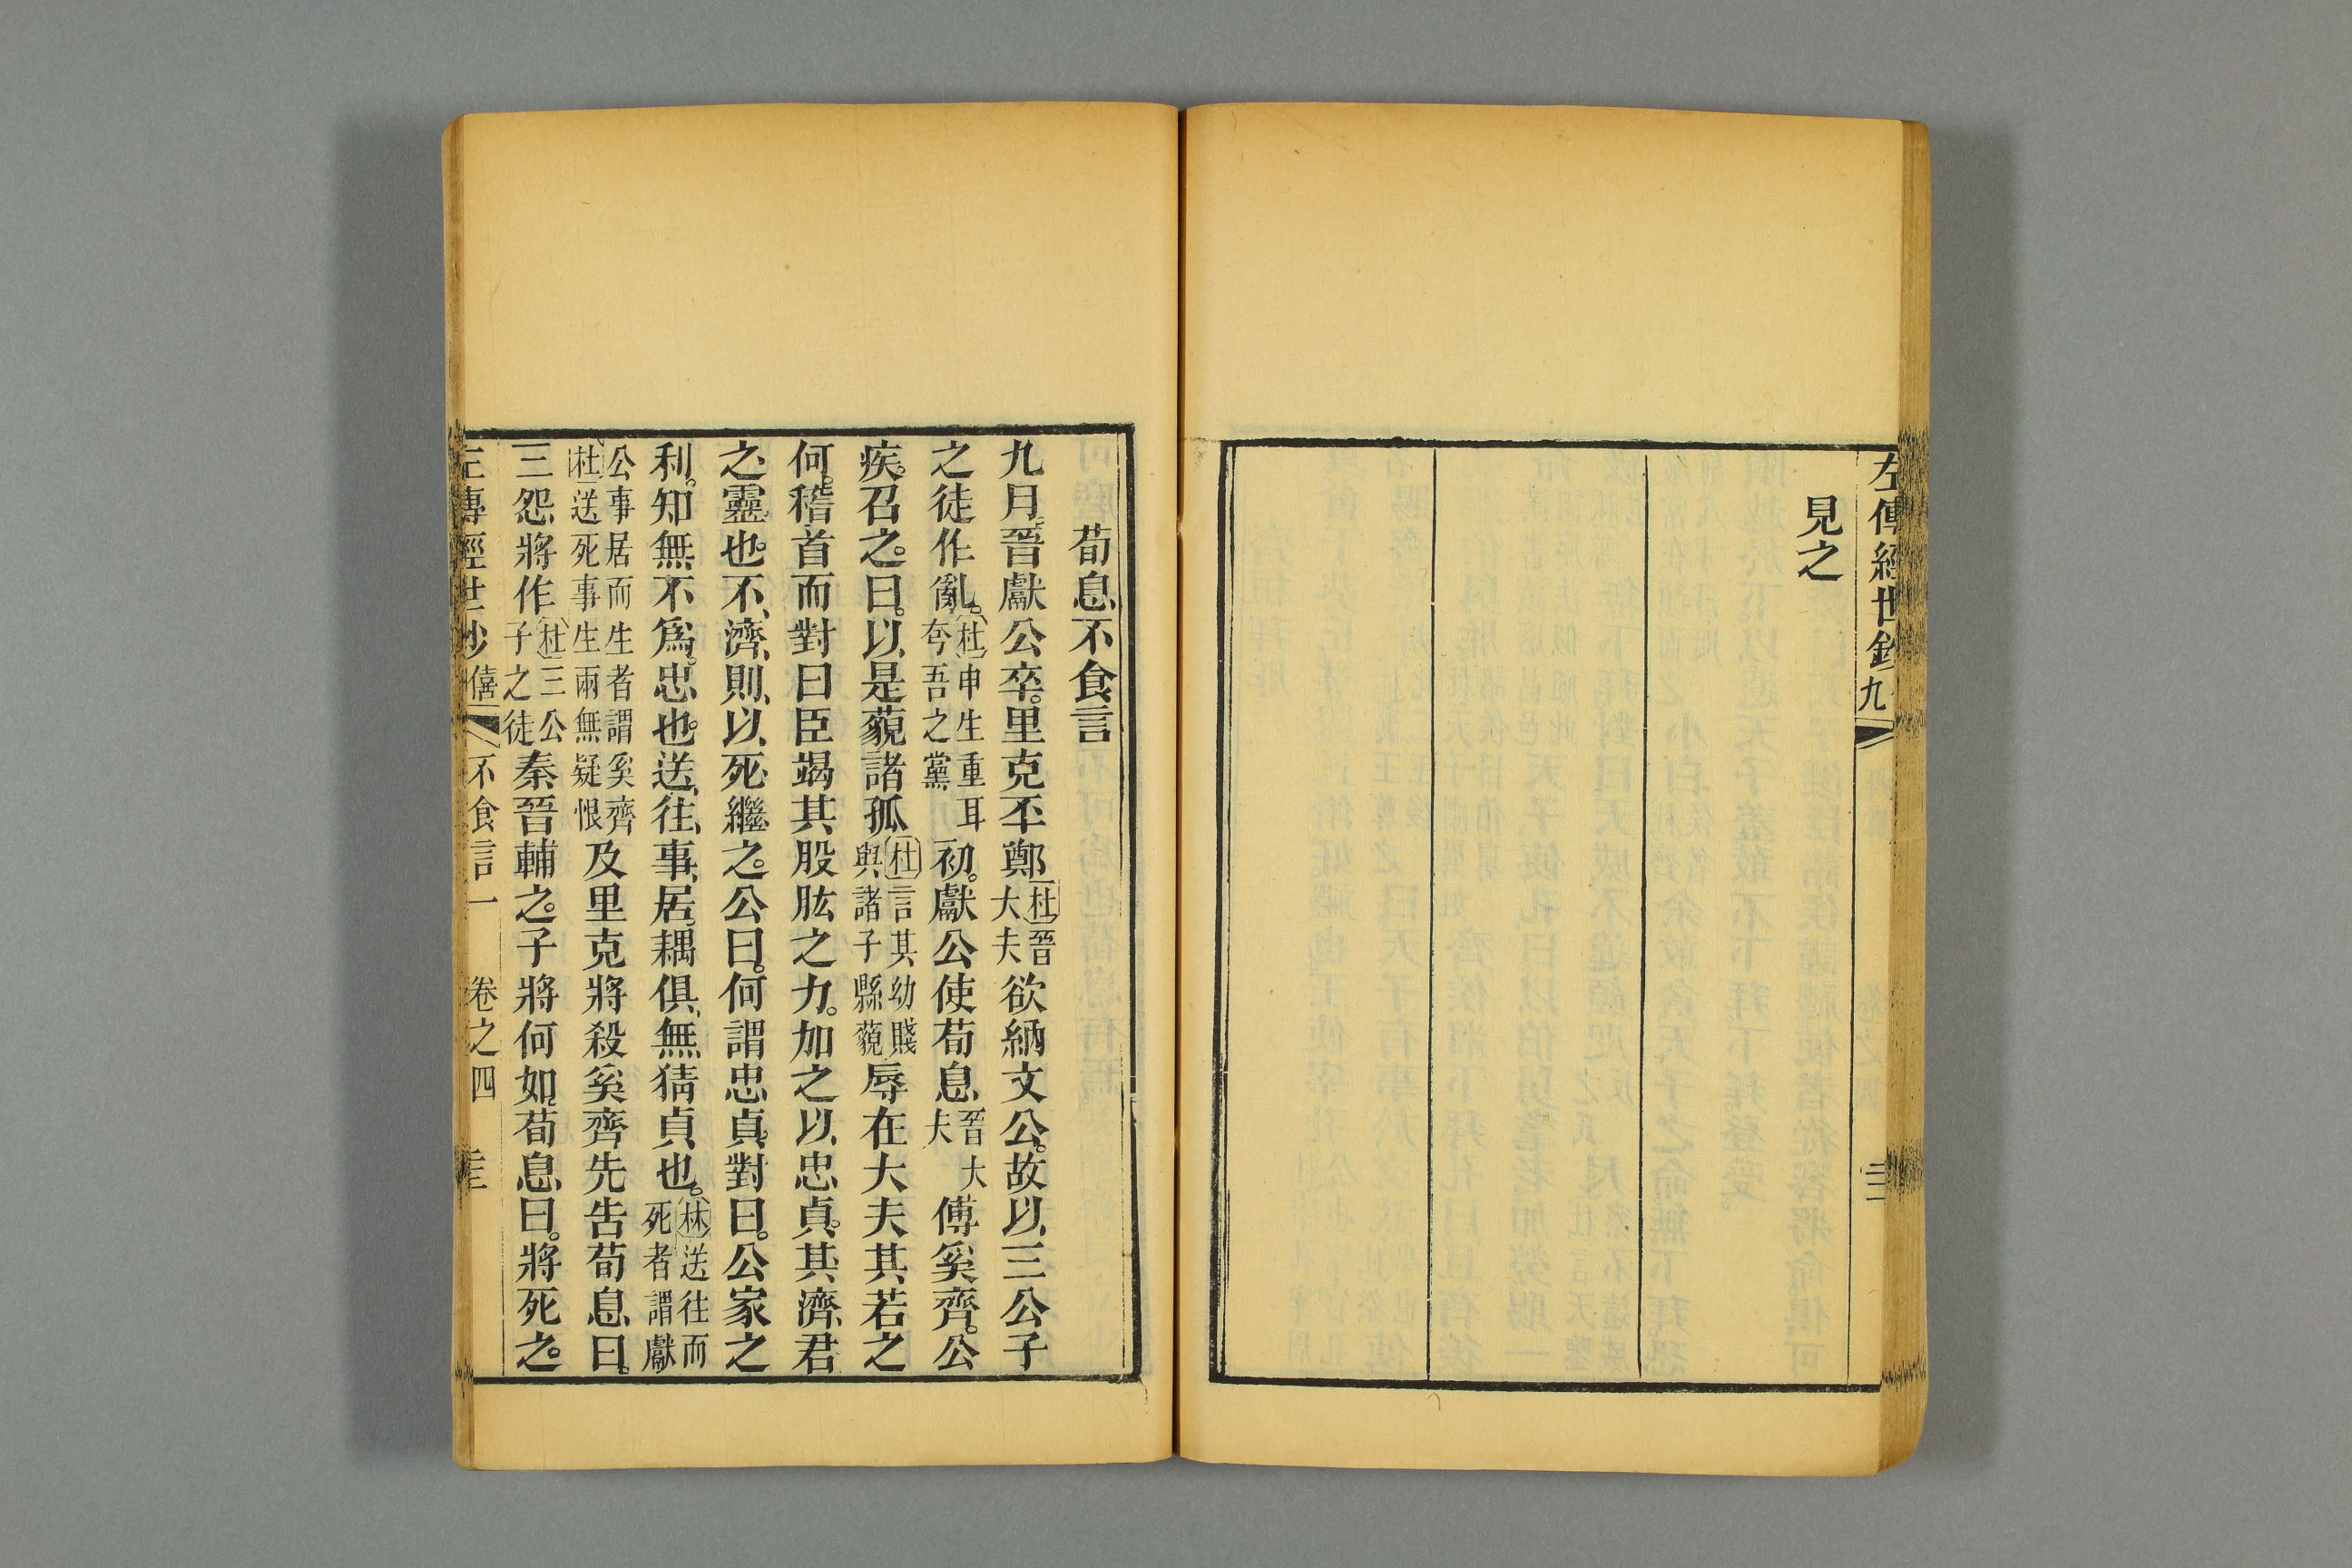 左傳經世鈔 九
見之
荀息不食言
九月。晉獻公卒。里克㔻鄭杜晉大夫欲納文公。故以三公子
之徒作亂。杜申生重耳夸吾之黨初。獻公使荀息晉大夫傅奚齊。公
疾。召之。曰。以是藐諸孤杜言其幼賤與諸子縣藐辱在大夫其若之
何。稽首而對曰臣竭其股肱之力。加之以忠貞。其濟君
之靈也。不濟則以死繼之。公曰。何謂忠貞。對曰。公家之
利。知無不爲。忠也。送往事居。耦俱無猜貞也。林送往而死者謂獻
公事居而生者謂奚齊杜送死事生兩無疑恨及里克將殺奚齊先告荀息曰。
三怨將作杜三公子之徒秦晉輔之。子將何如。荀息曰。將死之。
左傳經世鈔 僖 不食言一 卷之四